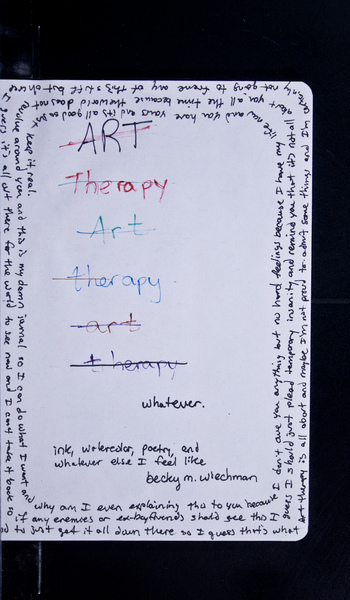 ART
Therapy
Art
therapy
art
therapy
whatever.
ink, watercolor, poetry, and
whatever else I feel like
becky m. wiechman
why am I even explaining this to you because
if any enemies or ex-boyfriends should see this I
just got it all down there so I guess that's what
Art therapy is all about and maybe I'm not proud to admit some things and I'm
guess I should just plead temporary insanity and remind you that it's not all
I don't owe you anything but no hard feelings because I have my
not going to frame any of this stuff but
about you all the time because the world does not
and you have yours and its all good so
revolve around you and this is my damn journal so I can do what I want and
guess it's all out there for the world to see now and I can't take it back so
keep it real.